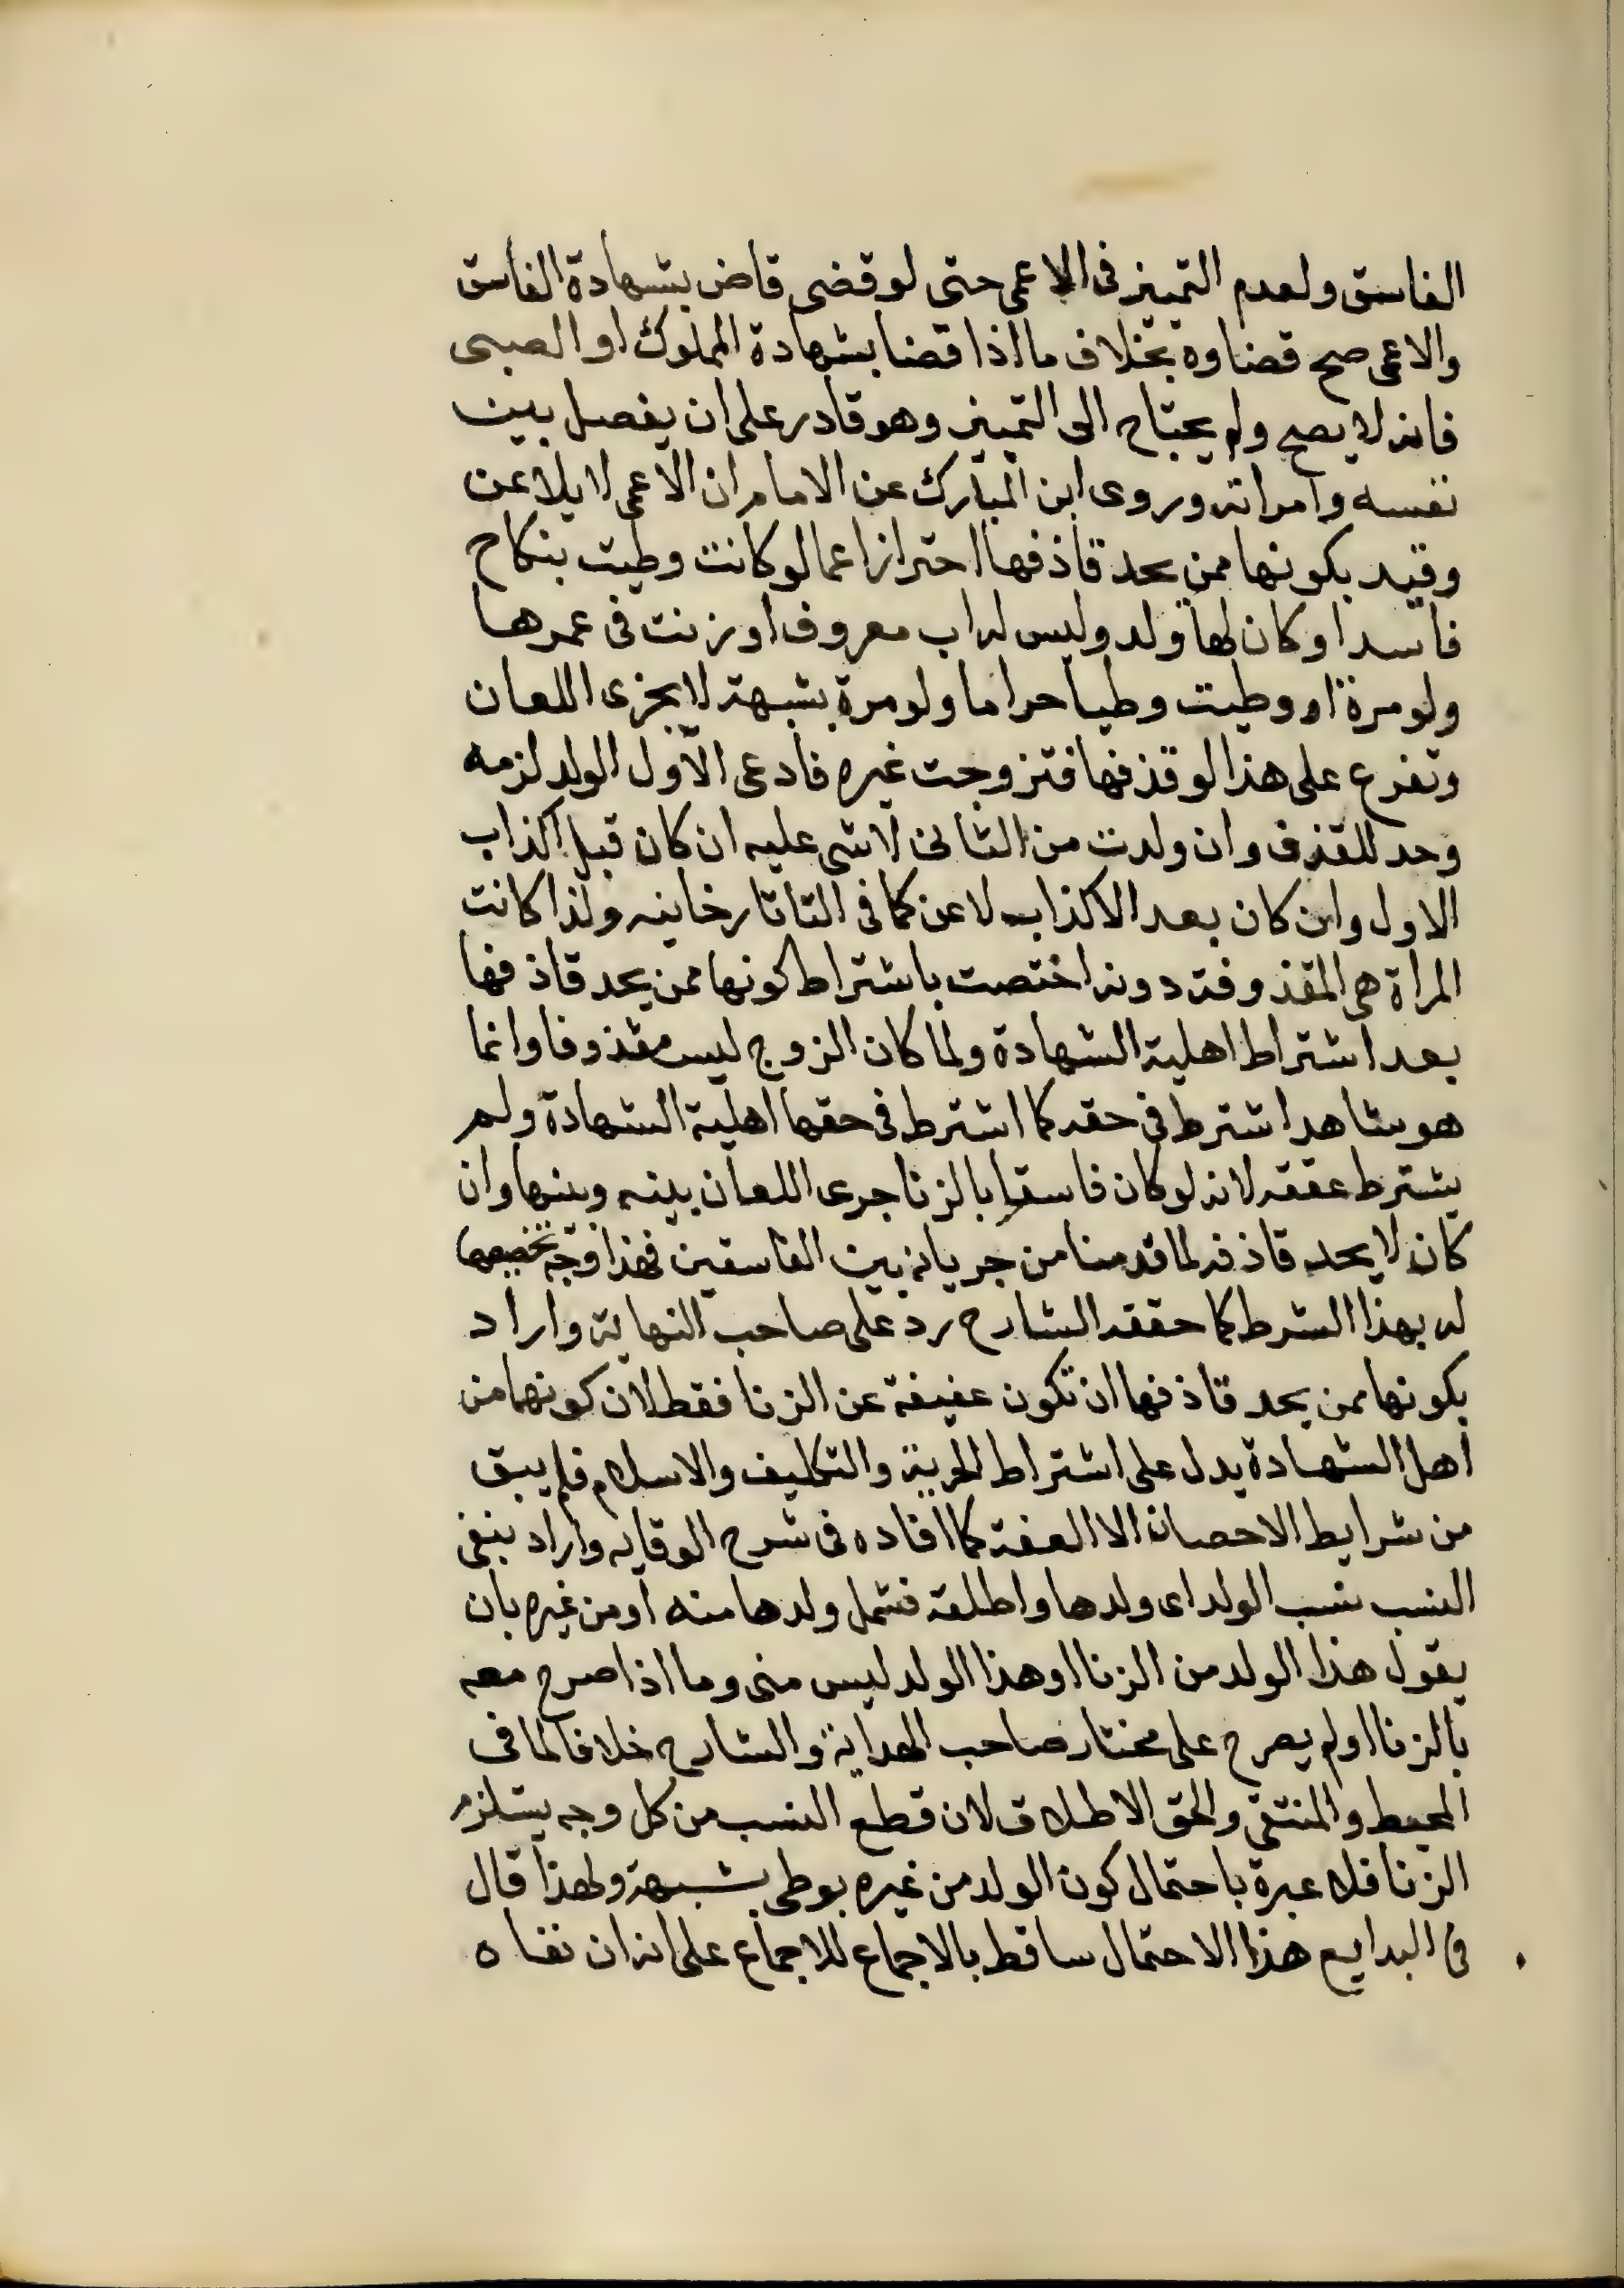 الفاسق ولعدم التمييز فى الاعمى حتى لو قضى قاض بشهادة الفاسق
والاعمى صح قضاوه بخلاف ما اذا قضا بشهادة المملوك او الصبى
فانه لا يصح ولم يحتاج الى التمييز وهو قادر على ان يفصل بين
نفسه وامراته وروى ابن المبارك عن الامام ان الاعمى لا يلاعن
وقيد بكونها ممن يحد قاذفها احترازا عما لو كانت وطيت بنكاح
فاسد او كان لها ولد وليس له اب معروف او زنت فى عمرها
ولو مرة او وطيت وطيا حراما ولو مرة بشبهة لا يجزى اللعان
وتفرع على هذا لو قذفها فتزوجت غيره فادعى الاول الولد لزمه
وحد للقذف وان ولدت من الثانى لا شى عليه ان كان قبل اكذاب
الاول وان كان بعد الاكذاب لاعن كما فى التاتارخانيه ولذا كانت
المراة هى المقذوفة دونه اختصت باشتراط كونها ممن يحد قاذفها
بعد اشتراط اهلية الشهادة ولما كان الزوج ليس مقذوفا وانما
هو شاهد اشترط فى حقه كما اشترط فى حقها اهلية الشهادة ولم
يشترط عفته لانه لو كان فاسقا بالزنا جرى اللعان بينه وبينها وان
كان لا يحد قاذفه لما قدمنا من جريانه بين الفاسقين فهذا وجه تخصيصها
له بهذا الشرط كما حققه الشارح رد على صاحب النهاية واراد
بكونها ممن يحد قاذفها ان تكون عفيفة عن الزنا فقط لان كونهما من
اهل الشهادة يدل على اشتراط الحرية والتكليف والاسلام فلم يبق
من شرايط الاحصان الا العفة كما افاده فى شرح الوقايه واراد بنفى
النسب نسب الولد اى ولدها واطلقه فشمل ولدها منه او من غيره بان
يقول هذا الولد من الزنا او هذا الولد ليس منى وما اذا صرح معه
بالزنا او لم يصرح على مختار صاحب الهداية والشارح خلافا لما فى
المحيط والمنتقى والحق الاطلاق لان قطع النسب من كل وجه يستلزم
الزنا فلا عبرة باحتمال كون الولد من غيره بوطى بشبهة ولهذا قال
فى البدايع هذا الاحتمال ساقط بالاجماع للاجماع على انه ان نفاه